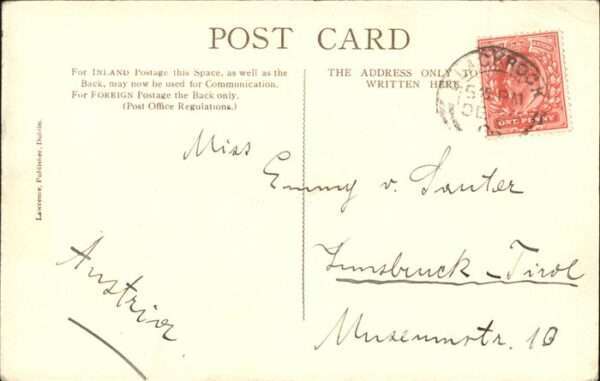 POST CARD
For INLAND Postage this Space, as well as the
Back, may now be used for Communication.
For FOREIGN Postage the Back only.
(Post Office Regulations.)
THE ADDRESS ONLY TO
WRITTEN HERE
BLACKROCK
5 PM
DE
ONE PENNY
Lawrence, Publisher, Dublin.
Miss
Emmy v. Sauter
Innsbruck - Tirol
Museumstr. 10
Austria